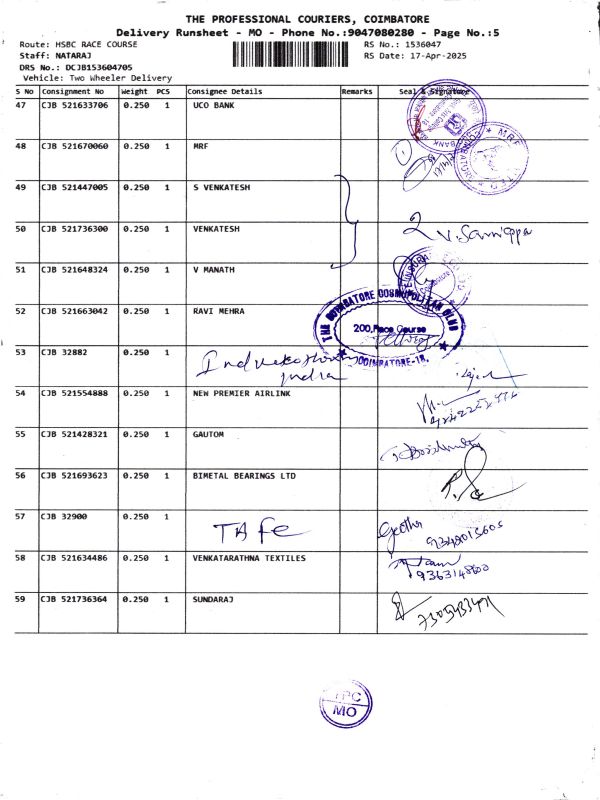 THE PROFESSIONAL COURIERS, COIMBATORE
Delivery Runsheet - MO - Phone No.:9047080280 - Page No.:5
Route: HSBC RACE COURSE RS No.: 1536047
Staff: NATARAJ RS Date: 17-Apr-2025
DRS No.: DCJB153604705
Vehicle: Two Wheeler Delivery
S No Consignment No Weight PCS Consignee Details Remarks Seal & Signature
47 CJB 521633706 0.250 1 UCO BANK
48 CJB 521670060 0.250 1 MRF
MRF
49 CJB 521447005 0.250 1 S VENKATESH
50 CJB 521736300 0.250 1 VENKATESH
51 CJB 521648324 0.250 1 V MANATH
52 CJB 521663042 0.250 1 RAVI MEHRA
THE COIMBATORE COSMOPOLITAN CLUB
200, Race Course
COIMBATORE-18.
53 CJB 32882 0.250 1
India
54 CJB 521554888 0.250 1 NEW PREMIER AIRLINK
55 CJB 521428321 0.250 1 GAUTOM
56 CJB 521693623 0.250 1 BIMETAL BEARINGS LTD
57 CJB 32900 0.250 1 TAFE Geetha
58 CJB 521634486 0.250 1 VENKATARATHNA TEXTILES
59 CJB 521736364 0.250 1 SUNDARAJ
TPC
MO